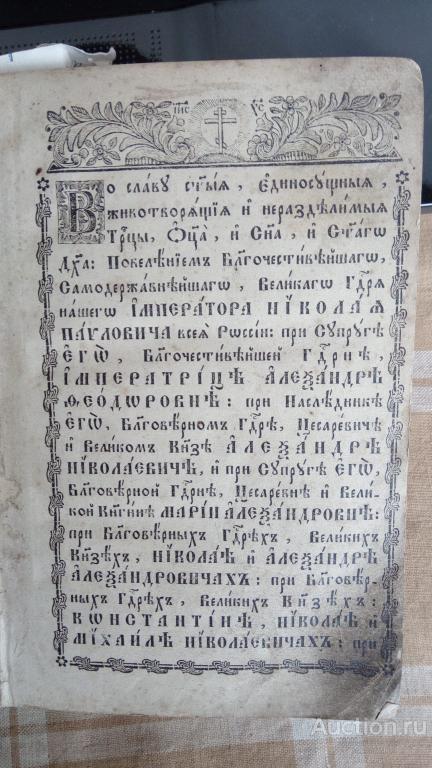 ІИС ХС
Во славу ст҃ыѧ, Единосущныѧ,
животворѧщіѧ и нераздѣлимыѧ
Трⷪ҇цы, Ѻц҃а, и Сн҃а, и Ст҃агѡ
Дх҃а: Повелѣніемъ Благочестивѣйшагѡ,
Самодержавнѣйшагѡ, Великагѡ Гдⷭ҇рѧ
нашегѡ ІМПЕРАТОРА НІКОЛАѦ
ПАѴЛОВИЧА всеѧ Рѡссіи: при Супругѣ
ЕГѠ, Благочестивѣйшей Гдⷭ҇рнѣ,
ІМПЕРАТРІЦѢ АЛЕѮАНДРѢ
ѲЕОДѠРОВНѢ: при Наслѣдникѣ
ЕГѠ, Благовѣрномъ Гдⷭ҇рѣ, Цесаревичѣ
и Великомъ Кнѧзѣ АЛЕѮАНДРѢ
НІКОЛАЕВИЧѢ, и при Супругѣ ЕГѠ,
Благовѣрной Гдⷭ҇рнѣ, Цесаревнѣ и Вели-
кой Кнѧгинѣ МАРІИ АЛЕѮАНДРОВНѢ:
при Благовѣрныхъ Гдⷭ҇рѣхъ, Великихъ
Кнѧзѣхъ, НІКОЛАѢ и АЛЕѮАНДРѢ
АЛЕѮАНДРОВИЧАХЪ: при Благовѣр-
ныхъ Гдⷭ҇рѣхъ, Великихъ Кнѧзѣхъ:
КѠНСТАНТІНѢ, НІКОЛАѢ и
МІХАИЛѢ НІКОЛАЕВИЧАХЪ: при
Auction.ru